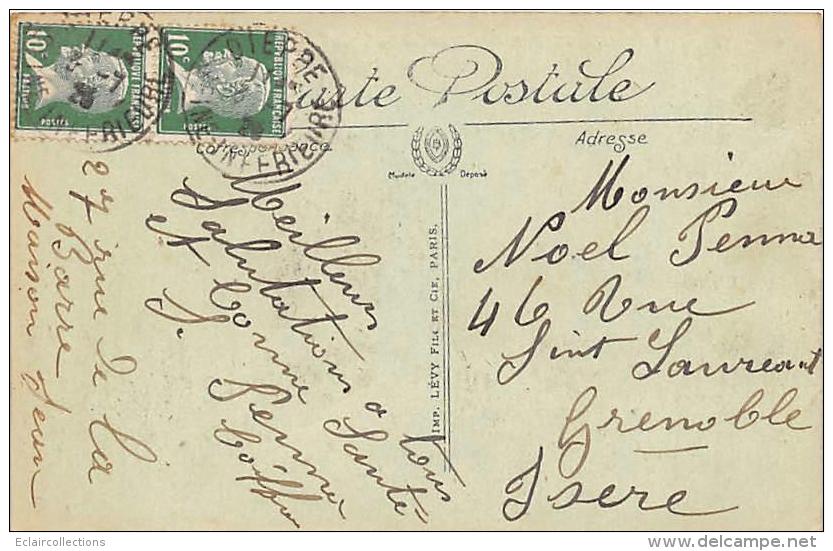 10c
RÉPUBLIQUE FRANÇAISE
POSTES
10c
RÉPUBLIQUE FRANÇAISE
POSTES
DIEPPE
INFERIEURE
Carte Postale
Correspondance
Adresse
Modèle Déposé
Meilleurs
Salutations a tous
et bonne Santé
S. Penna
Coiffeur
27 rue de la
Barre
Maison Jean
Monsieur
Noel Penna
46 Rue
Sint Laureant
Grenoble
Isere
IMP. LÉVY FILS ET CIE, PARIS.
Eclaircollections
delcampe.net